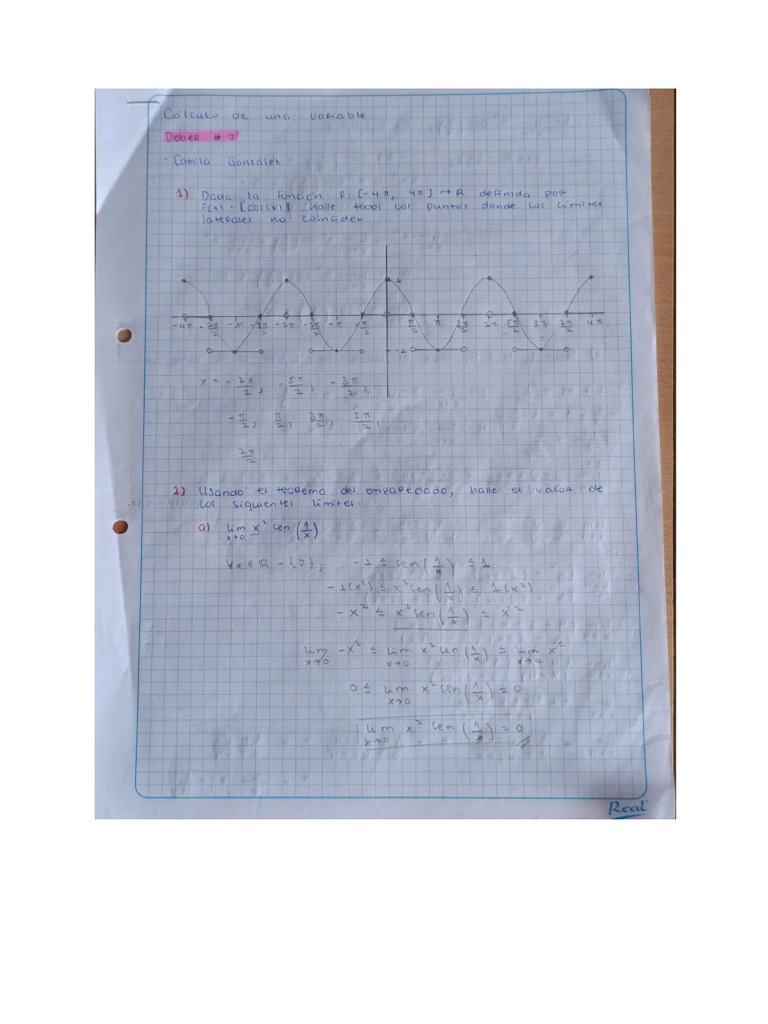 Cálculo de una variable
Deber #2
- Camila González
1) Dada la función f: [-4π, 4π] → R definida por
f(x) = [cos(x)] halle todos los puntos donde los límites
laterales no coinciden
1
-4π -7π/2 -3π -5π/2 -2π -3π/2 -π -π/2 π/2 π 3π/2 2π 5π/2 3π 7π/2 4π
-1
x = -7π/2, -5π/2, -3π/2,
-π/2, π/2, 3π/2, 5π/2,
7π/2
2) Usando el teorema del emparedado, halle el valor de
los siguientes límites
a) lim x→0 x² sen(1/x)
∀x ∈ R - {0}; -1 ≤ sen(1/x) ≤ 1
-1(x²) ≤ x² sen(1/x) ≤ 1(x²)
-x² ≤ x² sen(1/x) ≤ x²
lim x→0 -x² ≤ lim x→0 x² sen(1/x) ≤ lim x→0 x²
0 ≤ lim x→0 x² sen(1/x) ≤ 0
lim x→0 x² sen(1/x) = 0
Real